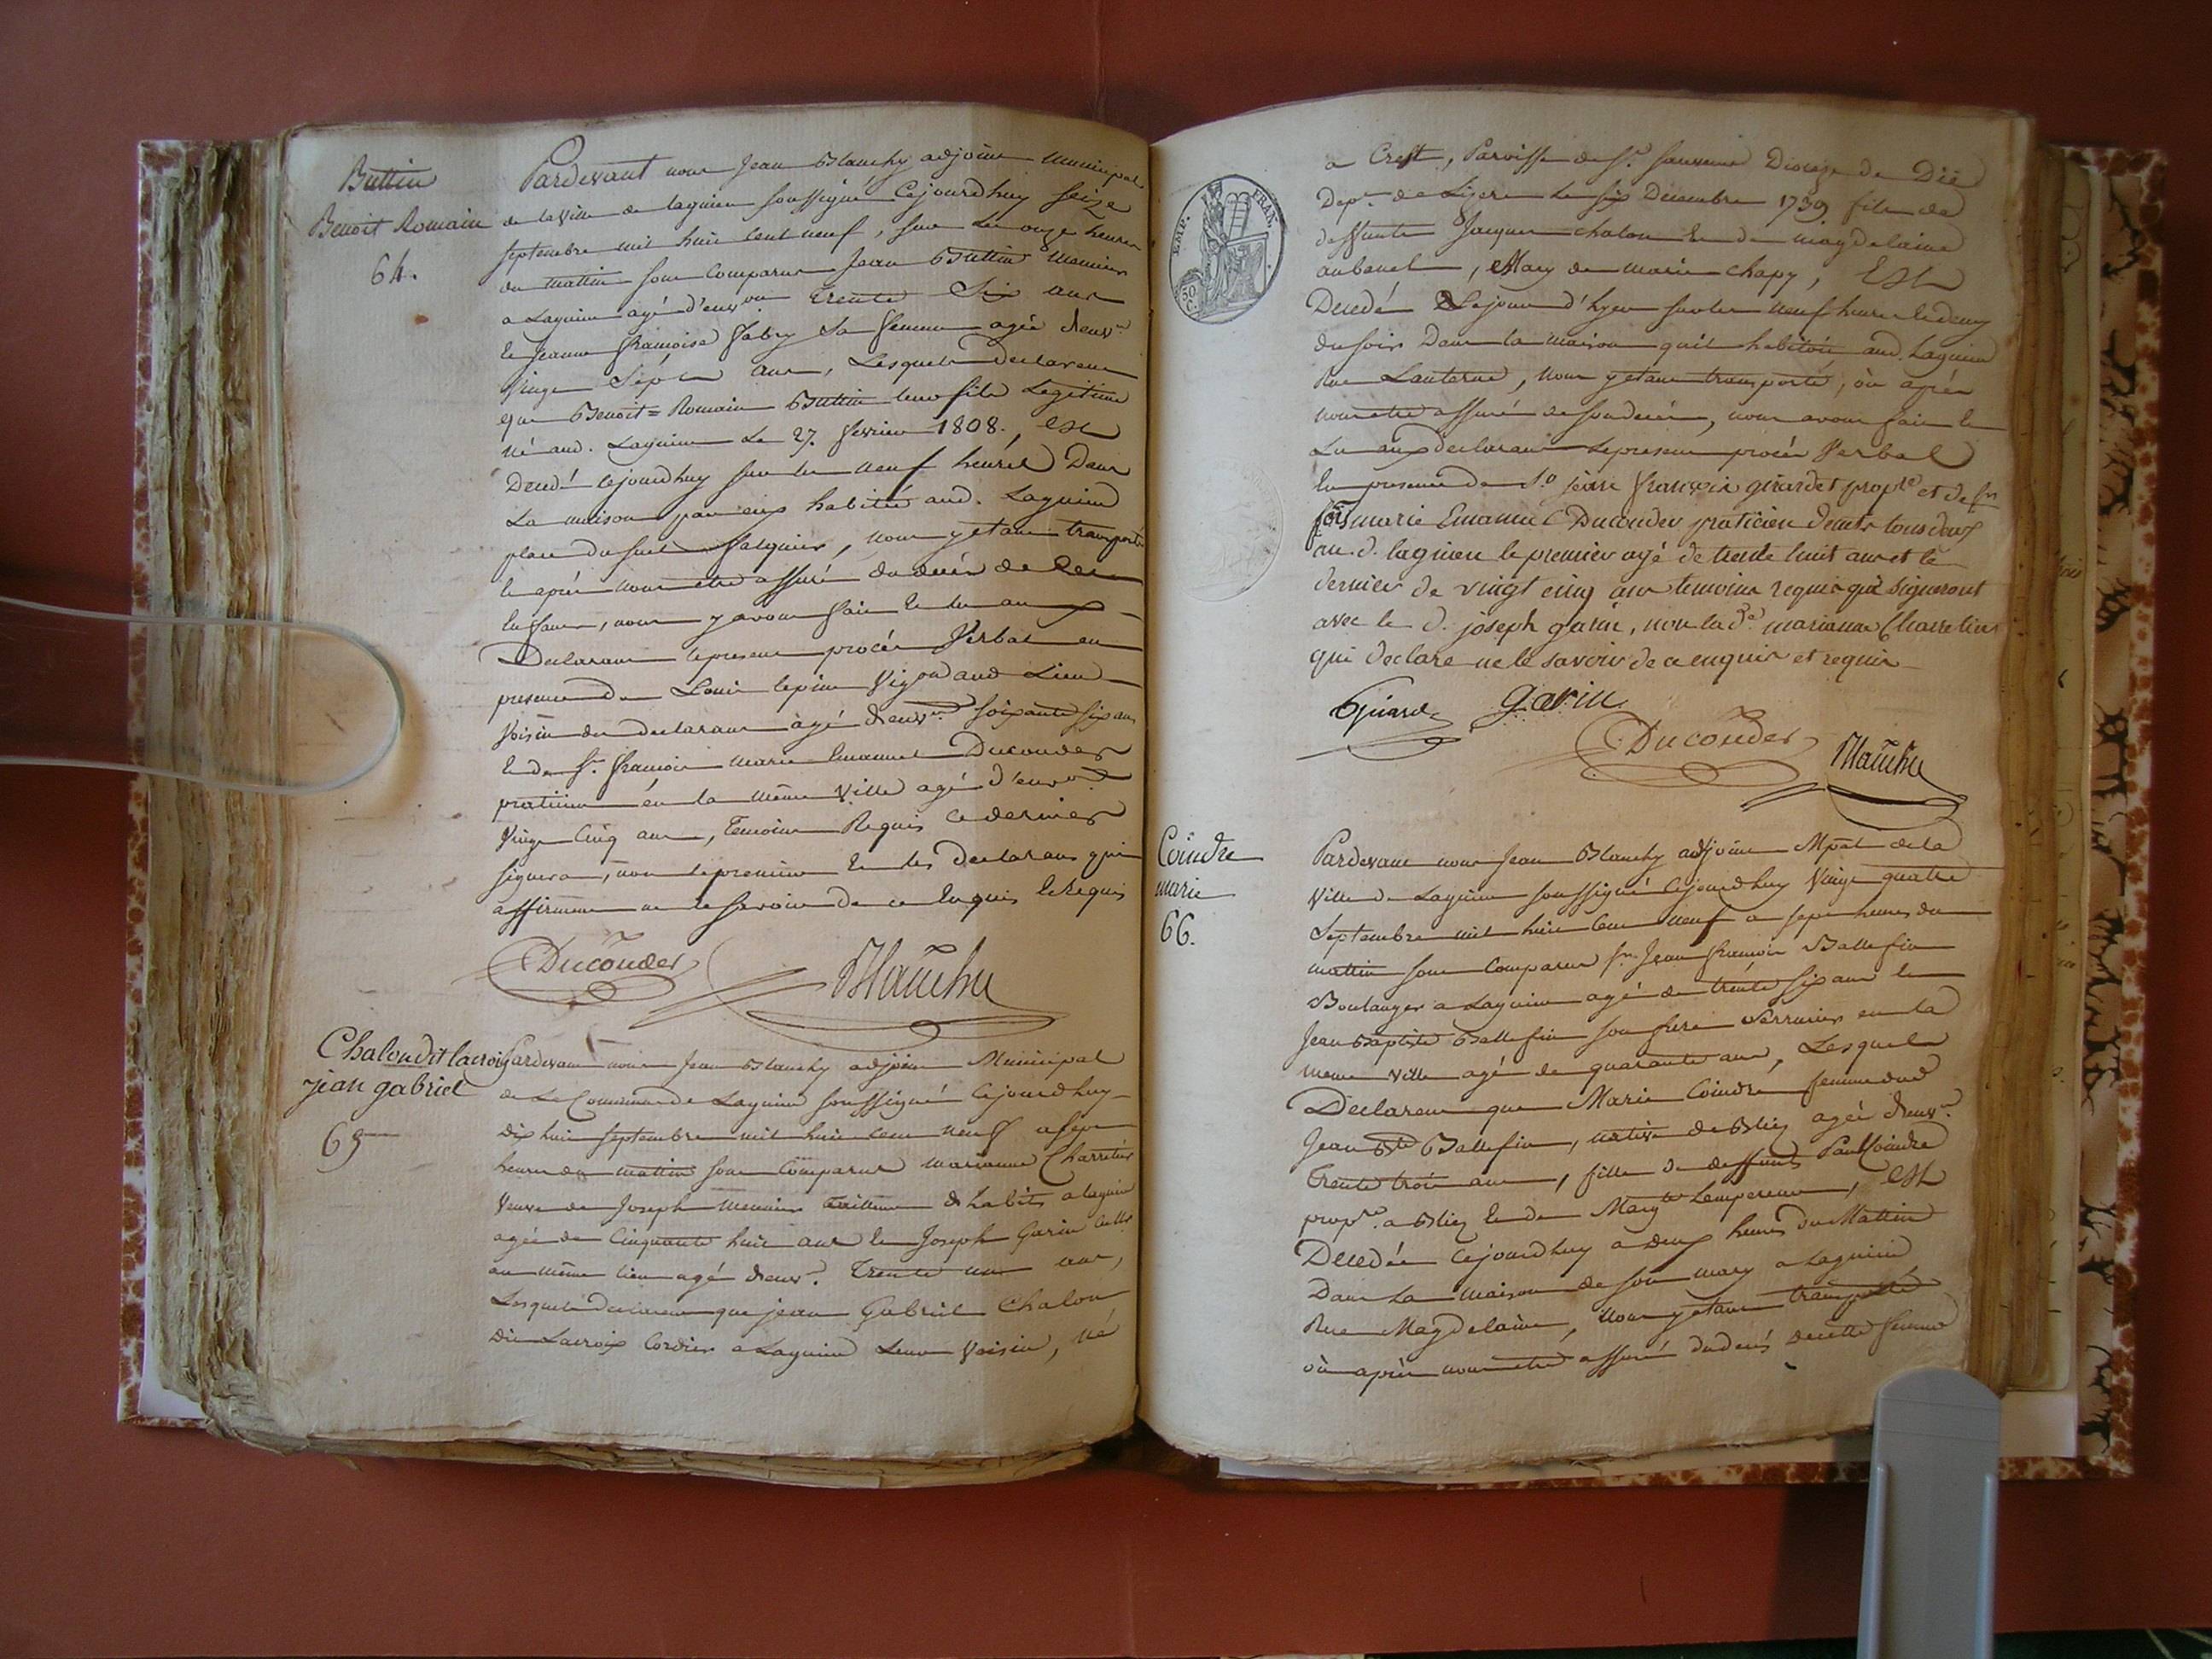 Buttin
Benoit Romain
64.
Pardevant nous Jean Blanchy adjoint Municipal
de la ville de lagnieu soussigné Cejourdhuy Seize
septembre mil huit cent neuf, sur les onze heures
du mattin sont Comparus Jean Buttin Meunier
a Lagnieu agé d'environ trente Six ans
et Jeanne françoise fabry sa femme agée d'envn
Vingt Sépt ans, Lesquels declarent
que Benoit=Romain Buttin leur fils Legitime
né aud. Lagnieu Le 27. fevrier 1808., Est
Decedé cejourdhuy sur les neuf heures Dans
La maison par eux habitée aud. Lagnieu
place du , nous y étant transporté
et après nous etre assuré du decés de Cet
Enfant, nous y avons fait et lu aux
Declarans le present procés Verbal en
presence de Louis lepine Vigon aud Lieu
Voisin des declarans agé d'envn soixante six ans
et de Sr. françois marie Emanuel Ducouder
praticien én la même Ville agé d'envon
Vingt Cinq ans, Temoins Requis ce dernier
signera, non le premier et les declarans qui
affirment ne le savoir de ce Enquis et Requis
Ducouder Blanchy
Chalon dit lacroix
jean gabriel
65
Pardevant nous Jean Blanchy adjoint Municipal
de La Commune de Lagnieu soussigné Cejourdhuy
Dix huit septembre mil huit cent neuf a sept
heures du mattin sont Comparus marianne Charretier
Veuve de Joseph Meunier tailleur d'habits a lagnieu
agée de Cinquante huit ans et Joseph Garin
au même lieu agé d'envn. Trente un ans,
Lesquels declarent que jean Gabriel Chalon
Dit Lacroix Cordier a Lagnieu Leur Voisin, né
EMP. FRAN.
50
C.
a Crest, Paroisse de St. sauveur Dioceze de Dié
Dept. de Lizere Le six Decembre 1739 fils de
deffunts Jacques chalon et de magdelaine
aubanel, Mary de marie chapy, Est
Decedé Le jour d'hyer sur les neuf heures et demy
du soir Dans la maison qu'il habitoit aud. Lagnieu
Rue Lanterne, nous y etant transporté, où après
nous etre assuré de son decés, nous avons fait et
Lu aux declarans le present procés Verbal
En presence de Sr. françois girardet propre et de sr
fois marie Emanuel Ducouder praticien demts tous deux
au d. lagnieu le premier agé de trente huit ans et le
dernier de vingt cinq ans temoins requis qui signeront
avec le d. joseph garin, non la de marianne Charretier
qui declare ne le savoir de ce enquis et requis
Girardet garin
Ducouder Blanchy
Coindre
marie
66.
Pardevant nous Jean Blanchy adjoint Mpal de la
Ville de Lagnieu soussigné Cejourdhuy Vingt quatre
Septembre mil huit cent neuf a sept heures du
mattin sont Comparus sr. Jean françois Ballefin
Boulanger a Lagnieu agé de trente six ans et
Jean Baptiste Ballefin son frere serrurier en la
meme ville agé de quarante ans, Lesquels
Declarent que Marie Coindre femme dud
Jean Bte Ballefin, native de Bliez agée d'envn.
Trente trois ans, fille de deffunts Paul Coindre
propre. a Bliez et de Margte Lempereur, Est
Decedée Cejourdhuy a deux heures du Mattin
Dans La maison de son mary a Lagnieu
Rue Magdelaine, nous y etant transporté
où après nous etre assuré du decés de cette femme